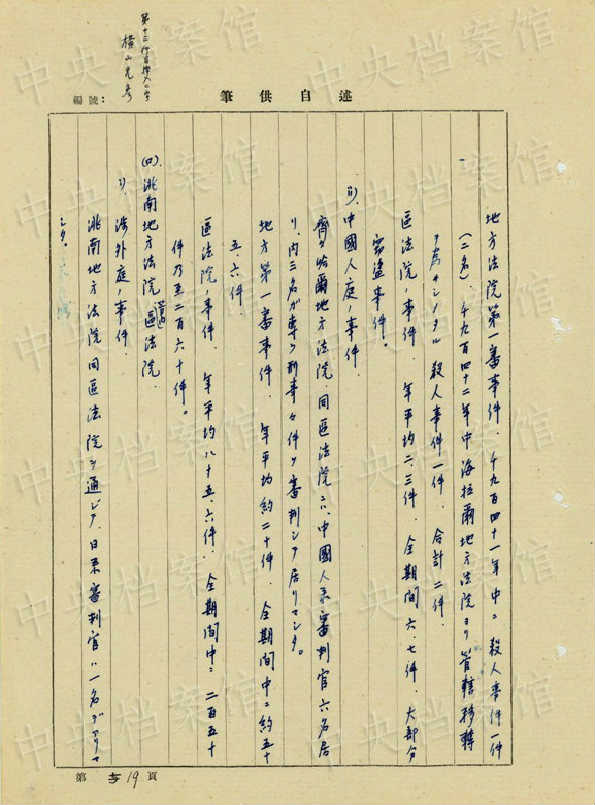 第十三行目挿入一字
横山光彦
編號：
筆供自述
地方法院第一審事件、千九百四十一年中ニ殺人事件一件
(二名)、千九百四十二年中海拉爾地方法院ヨリ管轄移轉
ヲ為サシメタル殺人事件一件、合計二件、
區法院ノ事件、年平均二、三件、全期間六、七件、大部分
窃盗事件。
(2)、中國人庭ノ事件、
齊々哈爾地方法院同區法院ニハ、中國人系審判官六名居
リ、内三名ガ専ラ刑事々件ヲ審判シテ居リマシタ。
地方第一審事件、年平均約二十件、全期間中ニ約五十
五、六件、
區法院ノ事件、年平均八十五、六件、全期間中ニ二百五十
件乃至二百六十件。
(四)、洮南地方法院 區法院、
(1)、渉外庭ノ事件、
洮南地方法院同區法院ヲ通ジテ、日系審判官ハ一名デアリマ
シタ。
第 19 頁
中央档案馆